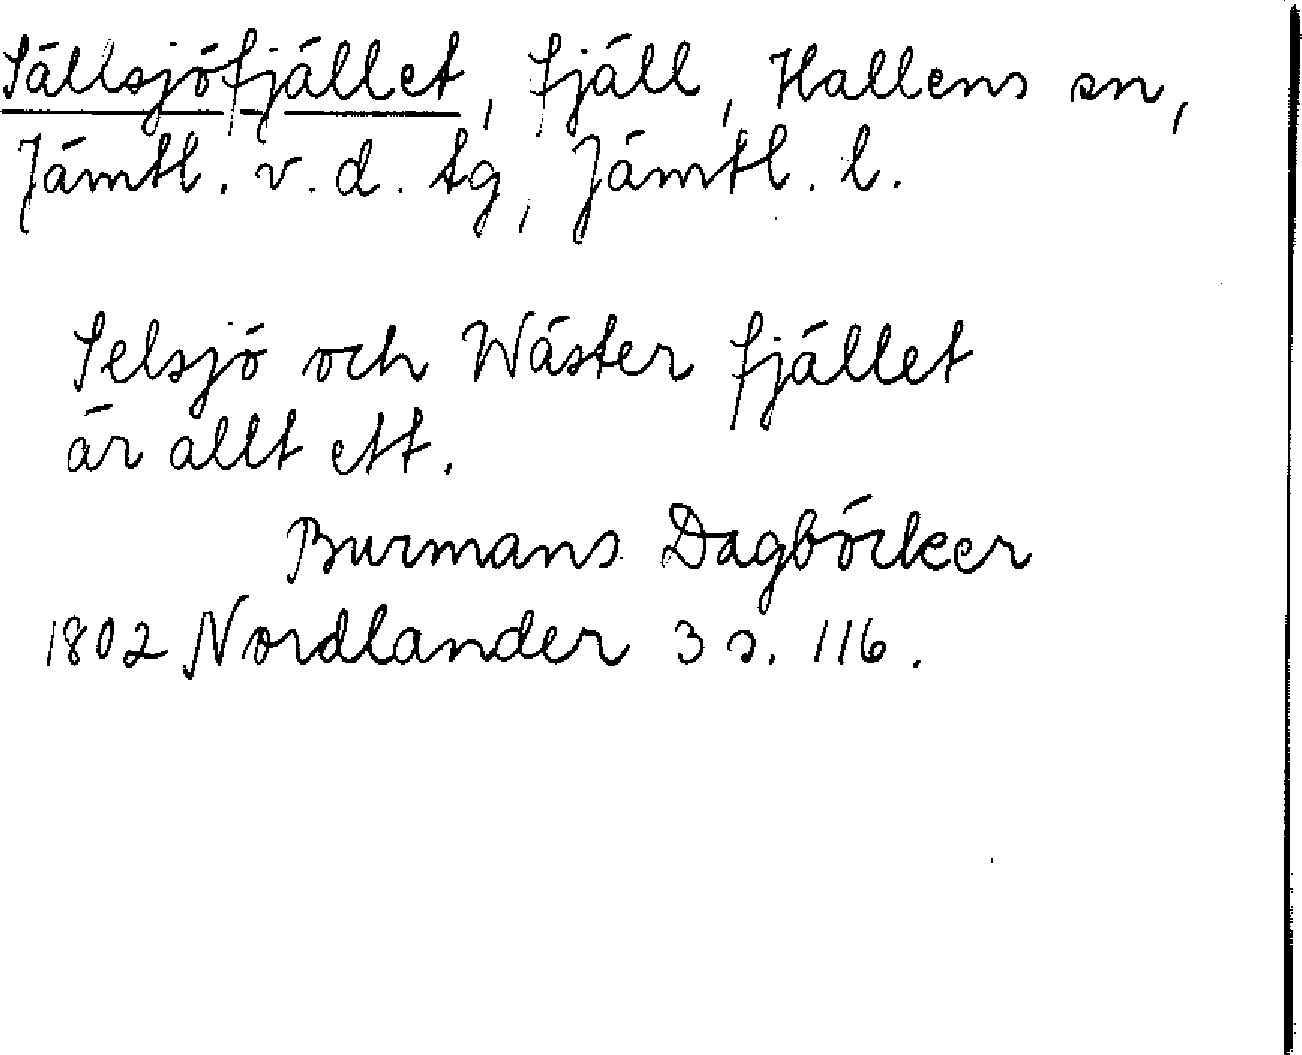 Sällsjöfjället, fjäll, Hallens sn,
Jämtl. v. d. tg, Jämtl. l.
Selsjö och Wäster fjället
är allt ett.
Burmans Dagböcker
1802 Nordlander 3 s. 116.